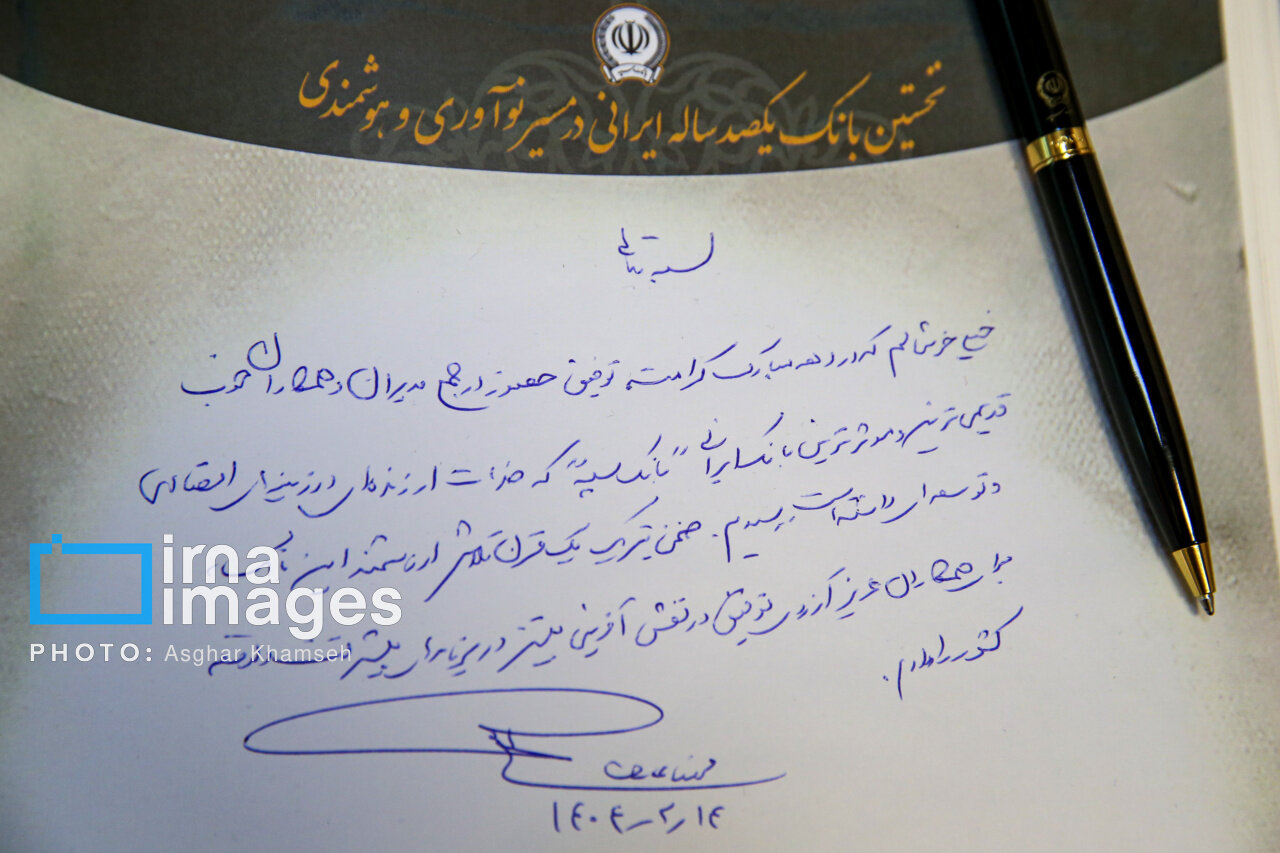 نخستین بانک یکصد ساله ایرانی در مسیر نوآوری و هوشمندی
بسمه تعالی
خیلی خوشحالم که در دهه مبارک کرامت، توفیق حضور در جمع مدیران و همکاران خوب
قدیمی‌ترین و موثرترین بانک ایرانی "بانک سپه" که خدمات ارزنده‌ای در زمینه‌های اقتصادی
و توسعه‌ای داشته است، رسیدم. ضمن تبریک یک قرن تلاش ارزشمند این بانک،
برای همکاران عزیز آرزوی توفیق در نقش آفرینی بیشتر در برنامه‌های پیشرفت
کشور را دارم.
۱۴۰۴/۲/۱۴
irna
images
PHOTO: Asghar Khamseh